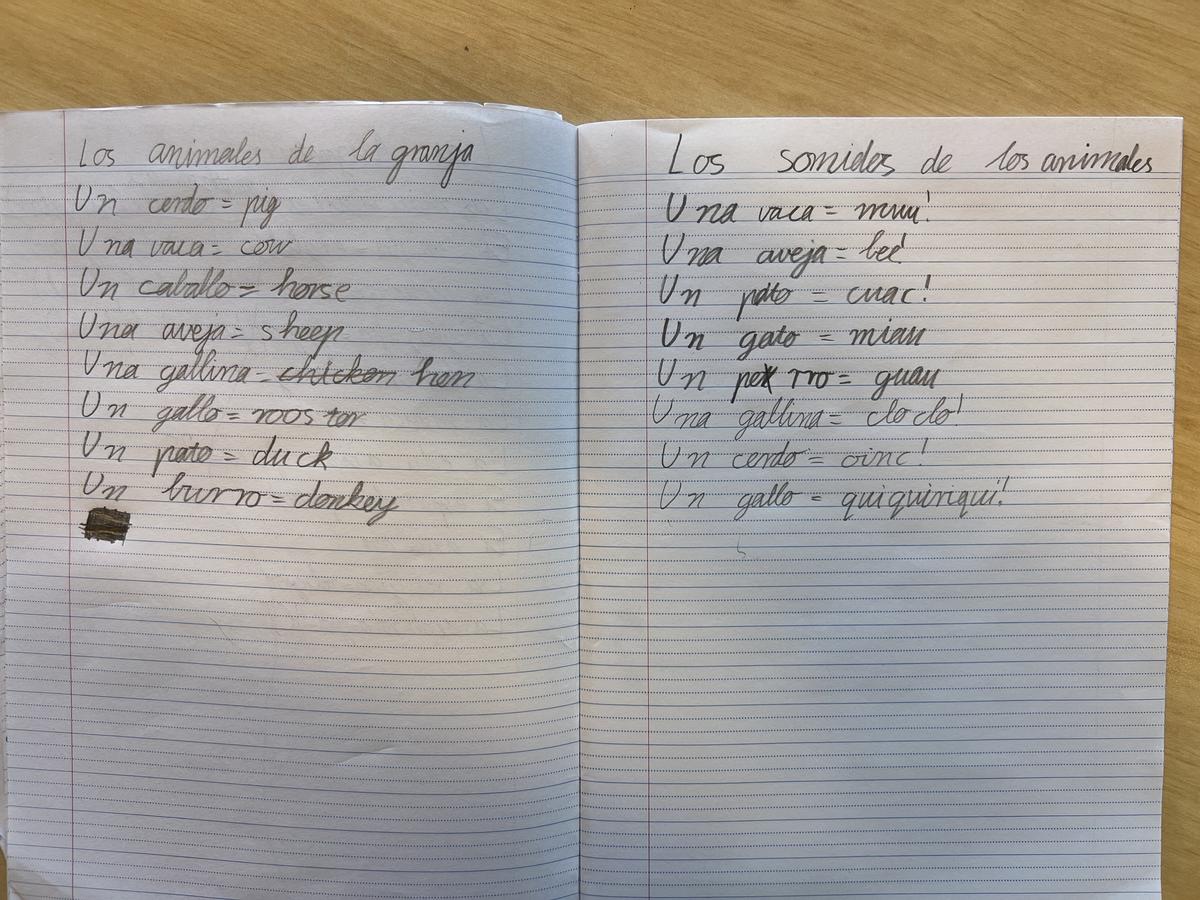 Los animales de la granja
Un cerdo = pig
Una vaca = cow
Un caballo = horse
Una aveja = sheep
Una gallina = chicken hen
Un gallo = rooster
Un pato = duck
Un burro = donkey
Los somidos de los animales
Una vaca = muu!
Una aveja = bee!
Un pato = cuac!
Un gato = miau
Un perro = guau
Una gallina = clo clo!
Un cerdo = oinc!
Un gallo = quiquiriqui!